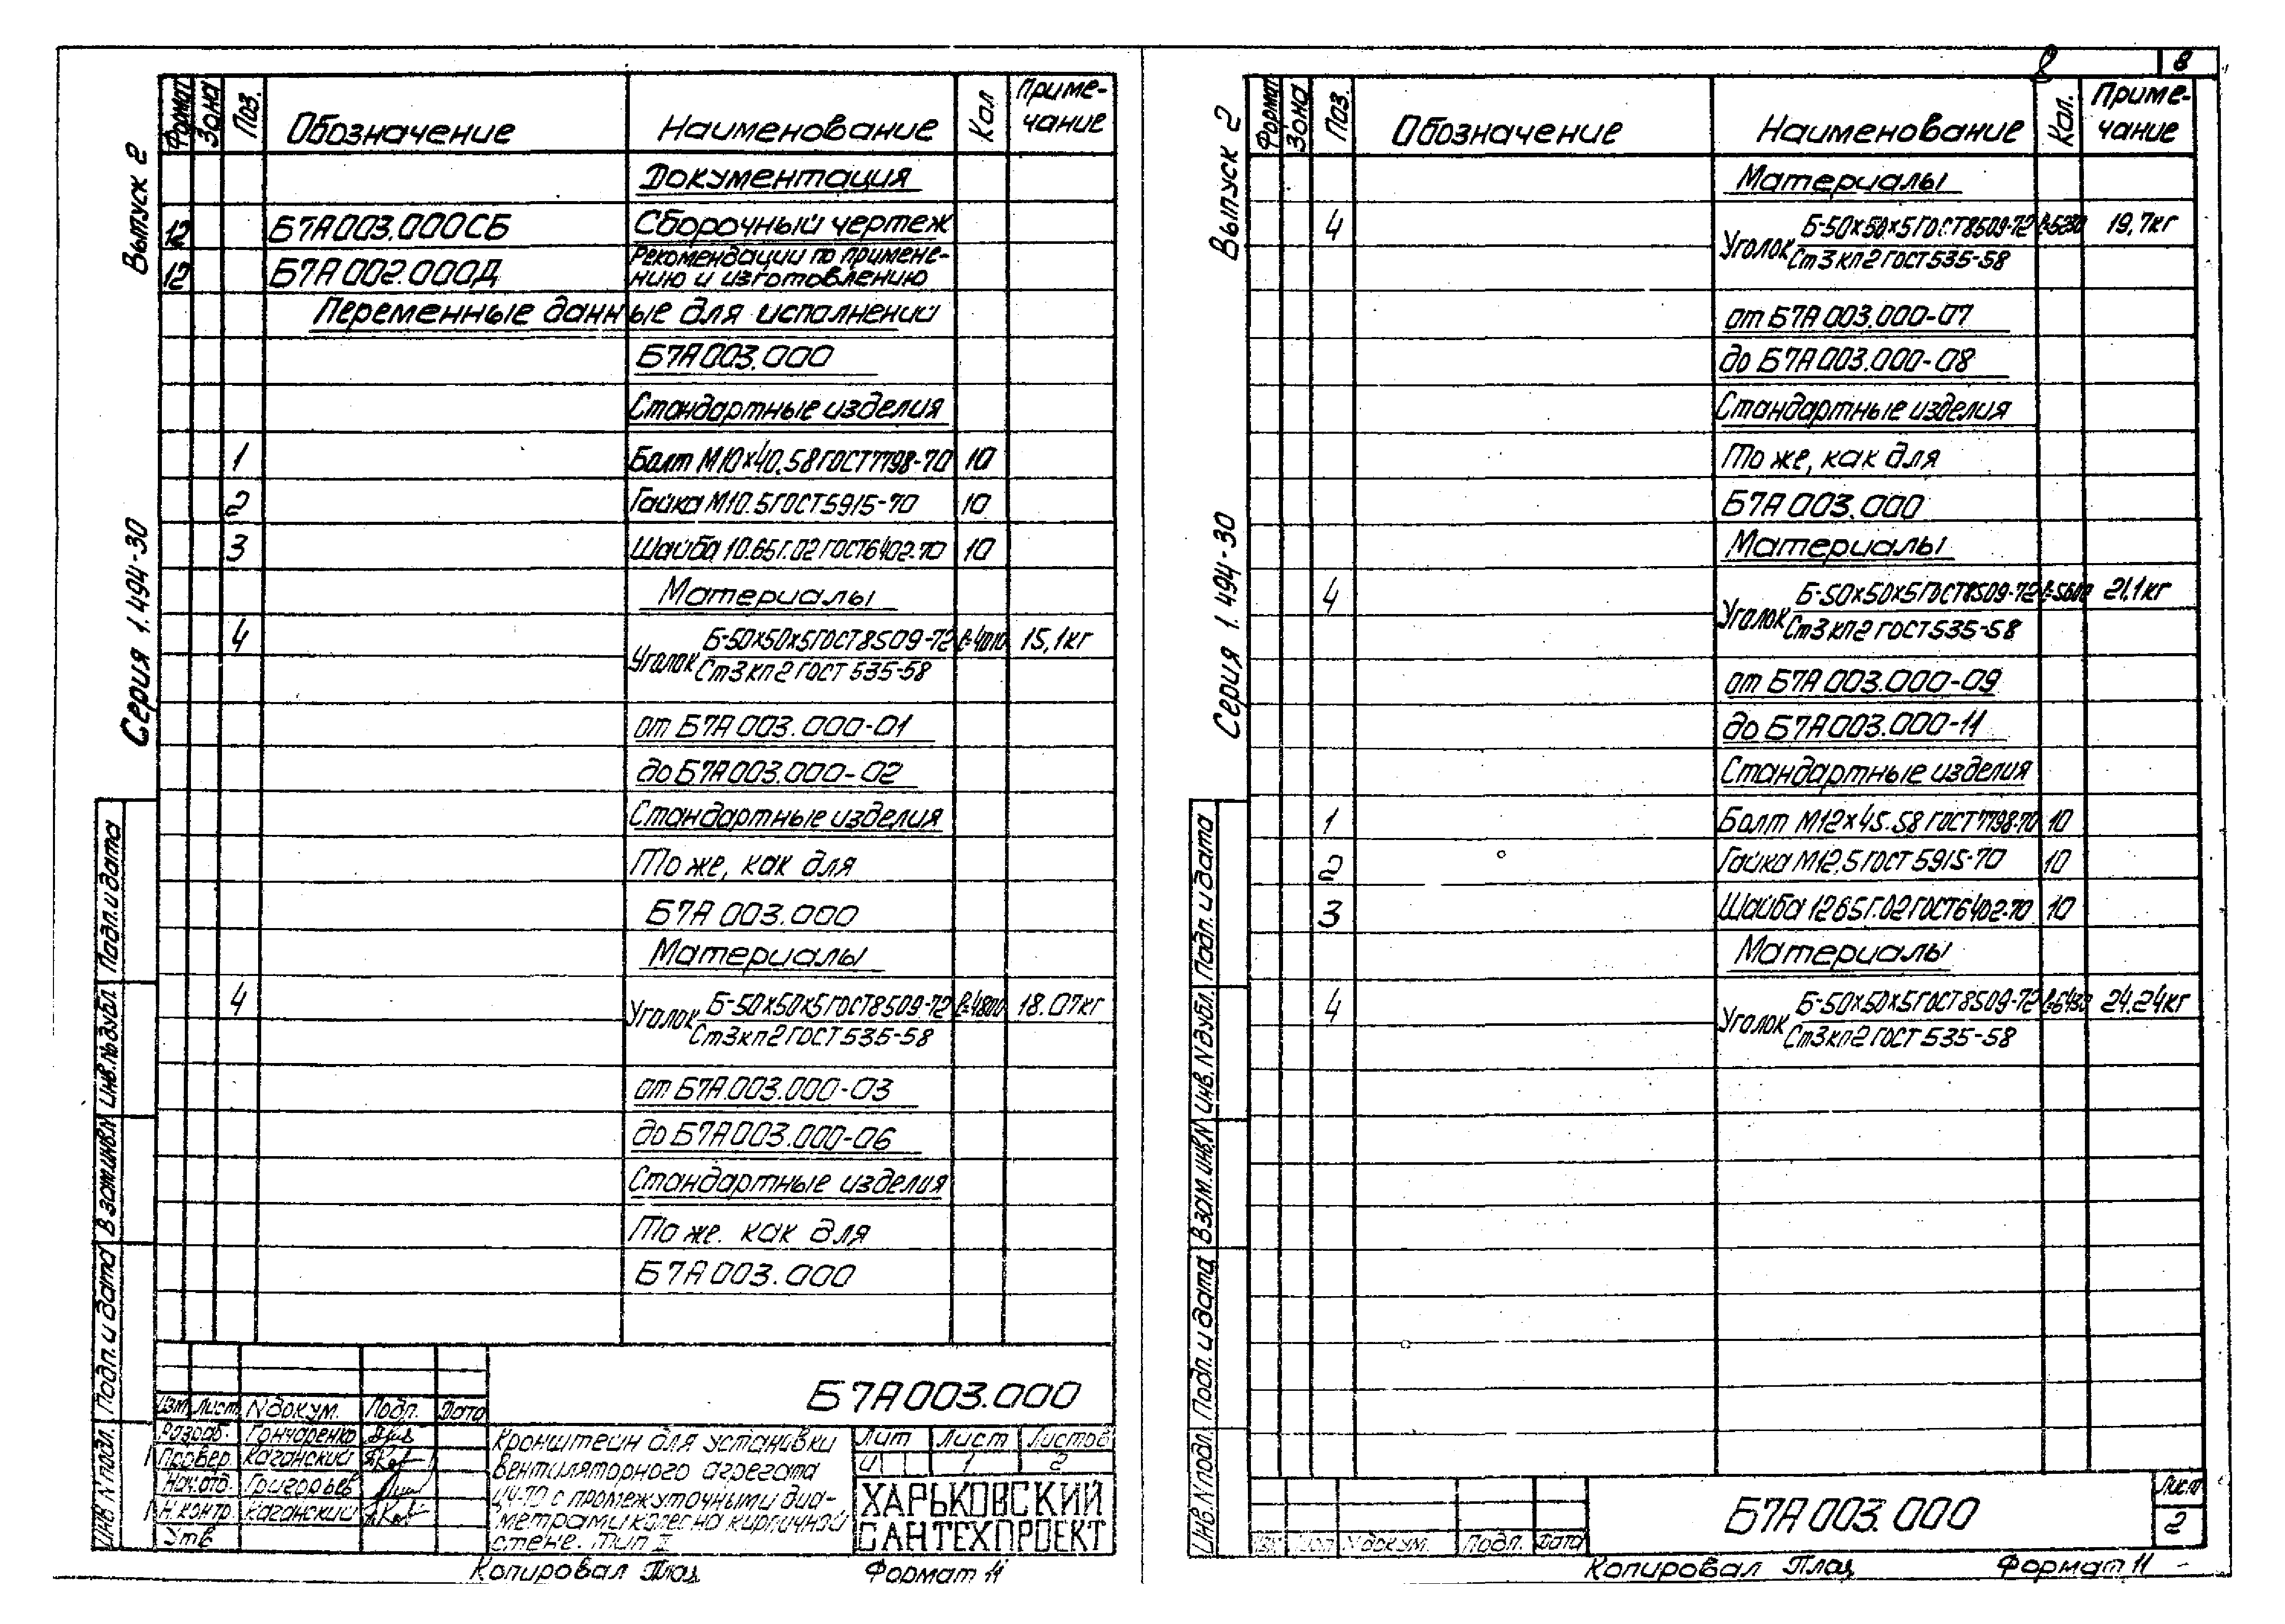 Выпуск 2
Серия 1.494-30
Формат Зона Поз. Обозначение Наименование Кол Приме-
чание
Документация
12 Б7А003.000СБ Сборочный чертеж
12 Б7А002.000Д Рекомендации по примене-
нию и изготовлению
Переменные данные для исполнений
Б7А003.000
Стандартные изделия
1 Болт М10×40.58 ГОСТ7798-70 10
2 Гайка М10.5 ГОСТ5915-70 10
3 Шайба 10.65Г.02 ГОСТ6402-70 10
Материалы
4 Уголок Б-50×50×5 ГОСТ8509-72 ℓ=4010 15,1кг
Ст3кп2 ГОСТ 535-58
от Б7А003.000-01
до Б7А003.000-02
Стандартные изделия
То же, как для
Б7А003.000
Материалы
4 Уголок Б-50×50×5 ГОСТ8509-72 ℓ=4800 18.07кг
Ст3кп2 ГОСТ 535-58
от Б7А.003.000-03
до Б7А003.000-06
Стандартные изделия
То же. как для
Б7А003.000
Подп. и дата
Инв.№дубл.
Взам.инв.№
Подп. и дата
Инв.№подл.
Б7А003.000
Изм Лист № докум. Подп. Дата
Разраб. Гончаренко
Провер. Каганский
Нач.отд. Григорьев
Н.контр. Каганский
Утв
Кронштейн для установки
вентиляторного агрегата
Ц4-70 с промежуточными диа-
метрами колес на кирпичной
стене. Тип II
Лит Лист Листов
И 1 2
ХАРЬКОВСКИЙ
САНТЕХПРОЕКТ
Копировал Формат 11
8
8
Выпуск 2
Серия 1.494-30
Формат Зона Поз. Обозначение Наименование Кол. Приме-
чание
Материалы
4 Уголок Б-50×50×5 ГОСТ8509-72 ℓ=5230 19,7кг
Ст3кп2 ГОСТ 535-58
от Б7А003.000-07
до Б7А003.000-08
Стандартные изделия
То же, как для
Б7А003.000
Материалы
4 Уголок Б-50×50×5 ГОСТ8509-72 ℓ=5600 21,1кг
Ст3кп2 ГОСТ 535-58
от Б7А003.000-09
до Б7А003.000-11
Стандартные изделия
1 Болт М12×45.58 ГОСТ7798-70 10
2 Гайка М12.5 ГОСТ 5915-70 10
3 Шайба 12 65Г.02 ГОСТ6402-70 10
Материалы
4 Уголок Б-50×50×5 ГОСТ8509-72 ℓ=6430 24.24кг
Ст3кп2 ГОСТ 535-58
Подп. и дата
Инв.№дубл.
Взам.инв.№
Подп. и дата
Инв.№подл.
Изм Лист № докум. Подп. Дата
Б7А003.000
Лист
2
Копировал Формат 11